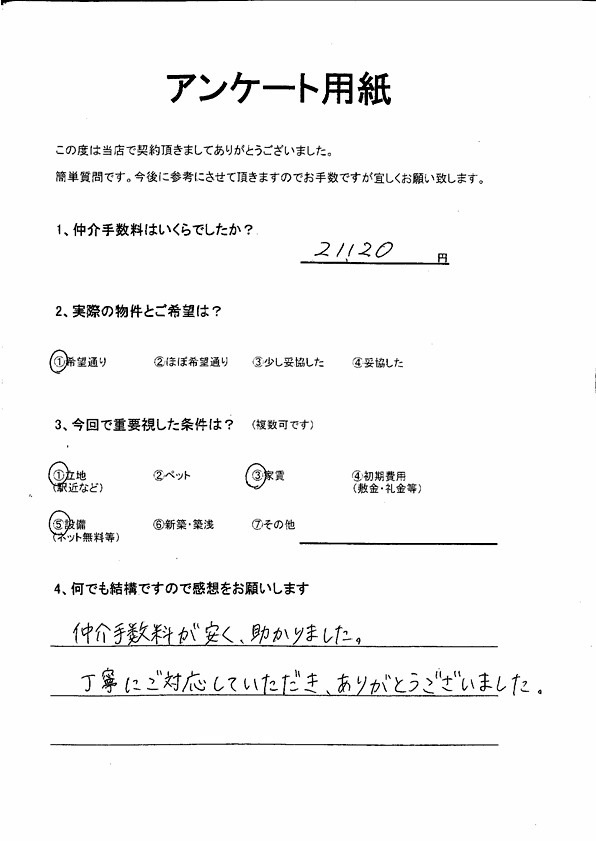 アンケート用紙
この度は当店で契約頂きましてありがとうございました。
簡単質問です。今後に参考にさせて頂きますのでお手数ですが宜しくお願い致します。
1、仲介手数料はいくらでしたか?
21,120 円
2、実際の物件とご希望は?
①希望通り ②ほぼ希望通り ③少し妥協した ④妥協した
3、今回で重要視した条件は? (複数可です)
①立地 ②ペット ③家賃 ④初期費用
(駅近など) (敷金・礼金等)
⑤設備 ⑥新築・築浅 ⑦その他
(ネット無料等)
4、何でも結構ですので感想をお願いします
仲介手数料が安く、助かりました。
丁寧にご対応していただき、ありがとうございました。